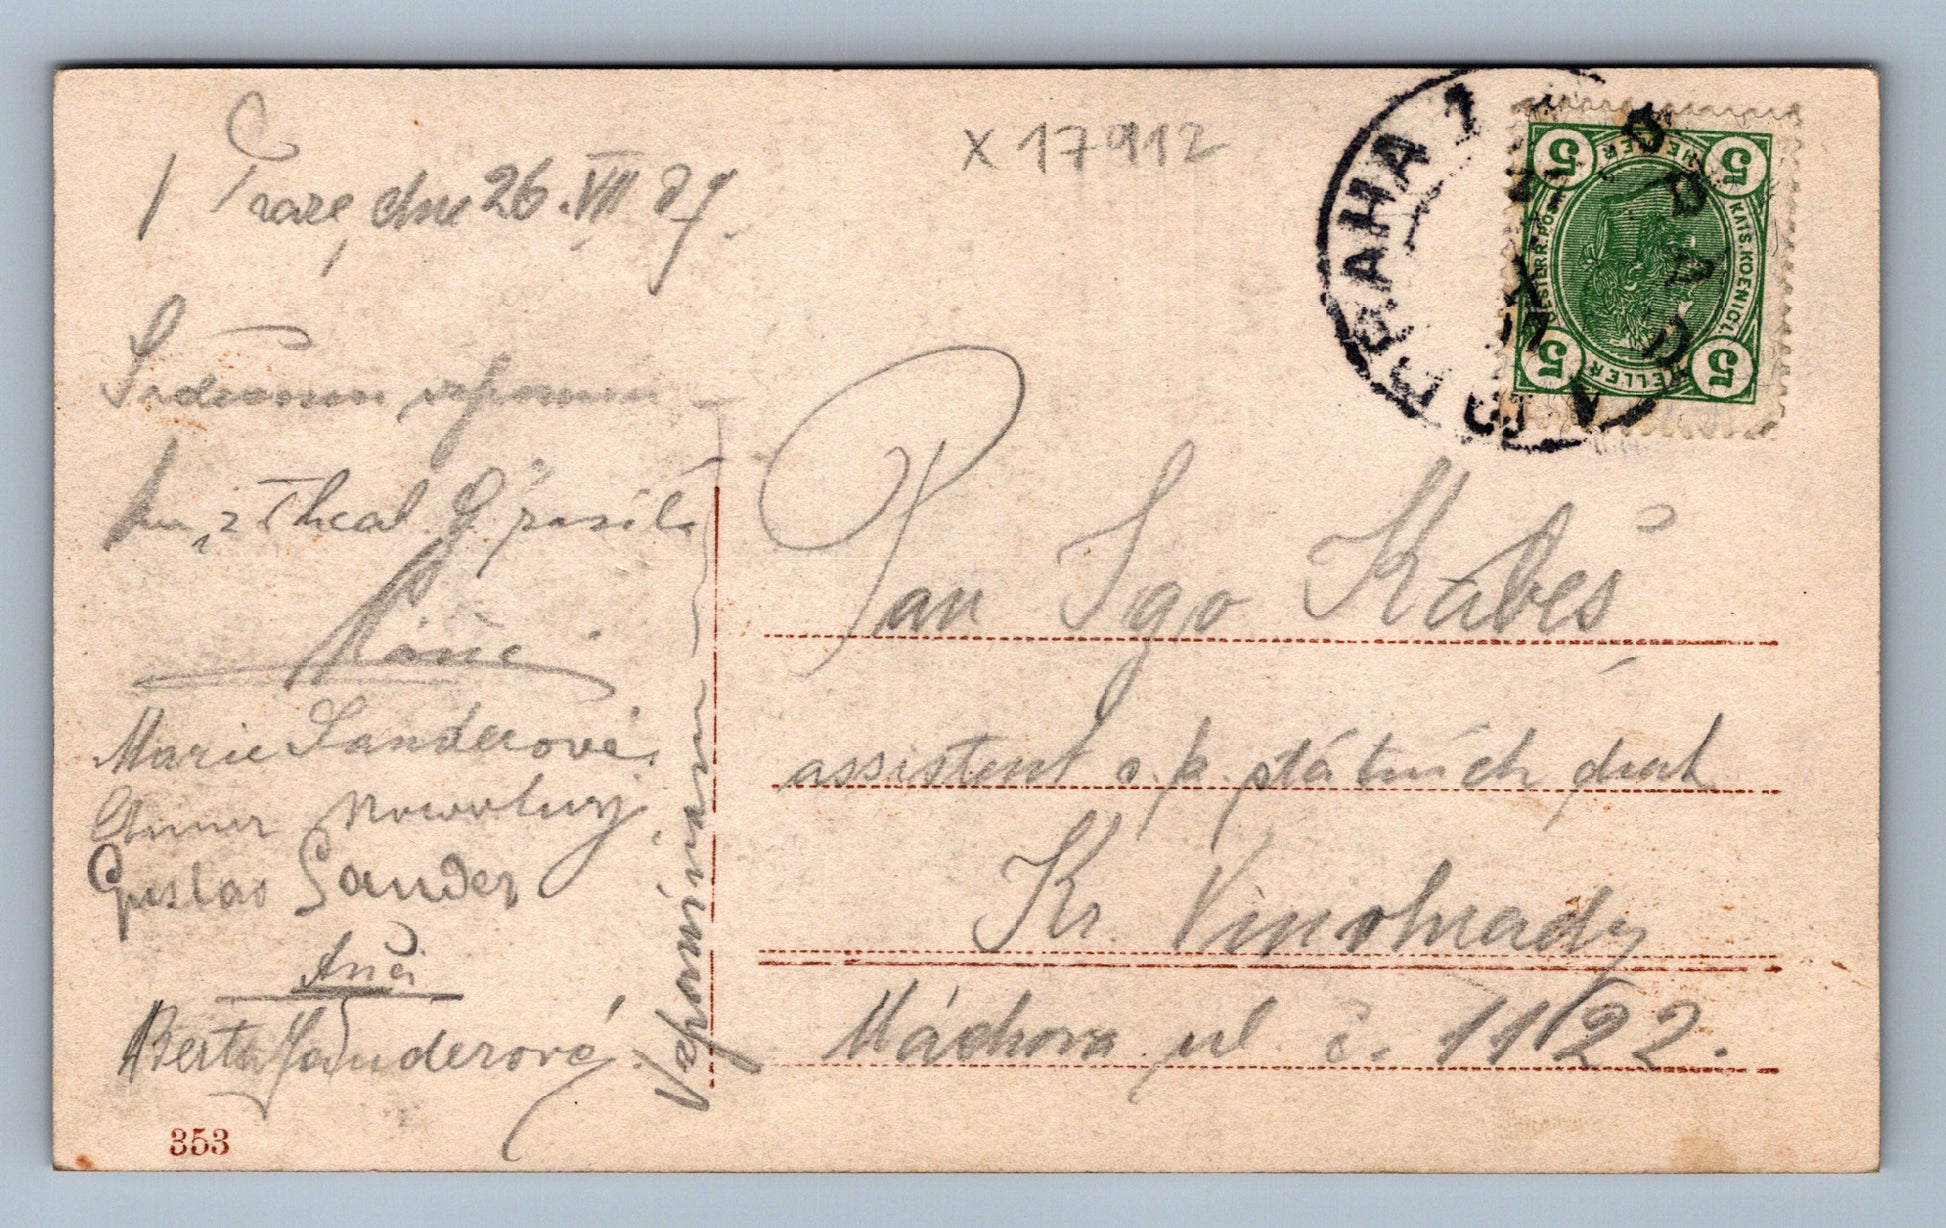 X 17912
V Praze, dne 26. VII 07.
Srdečnou vzpomín-
Vám z
zasílá
Máňa
Marie Sanderová.
Novotný.
Gustav Sander
Anči
Berta Sanderová.
Vzpomínám
353
PRAHA 1
5 HELLER 5
KAIS. KOENIGL. OESTERR. POST
5 HELLER 5
Pan Igo Kabeš
assistent s. k. státních drah
Kr. Vinohrady
Máchova ul. č. 1122.